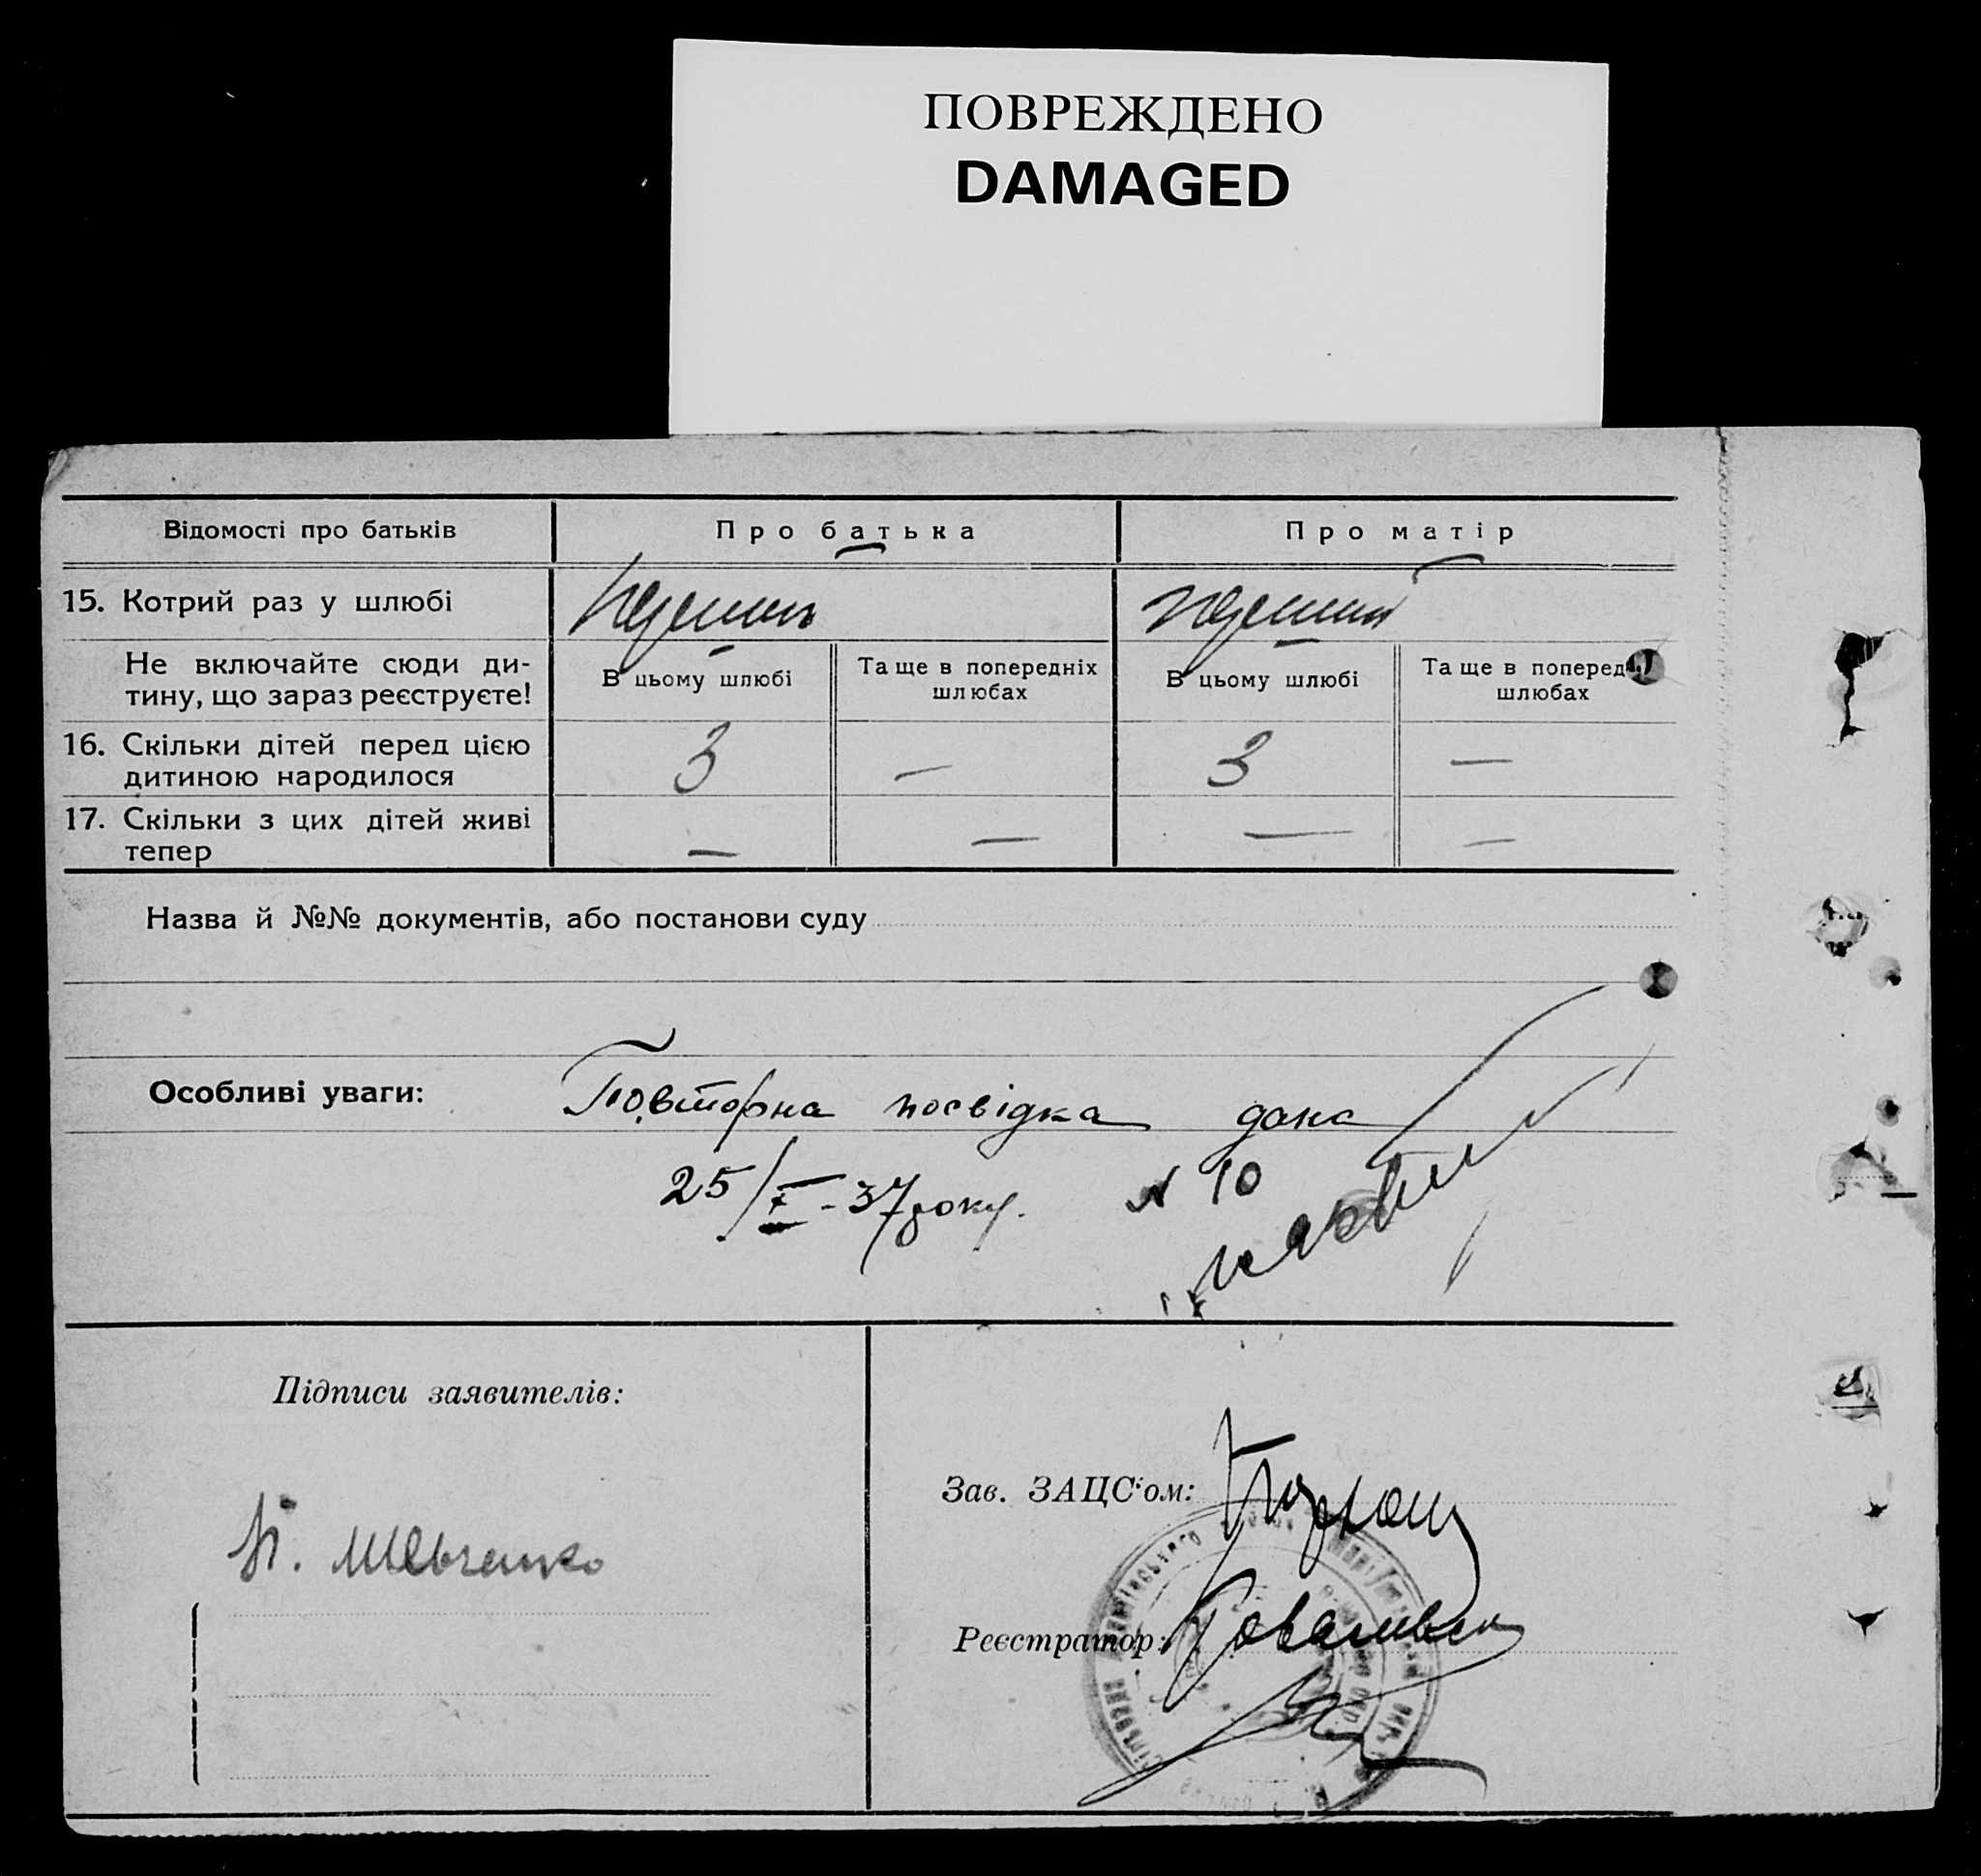 ПОВРЕЖДЕНО
DAMAGED
Відомості про батьків
Про батька
Про матір
15. Котрий раз у шлюбі
Не включайте сюди ди-
тину, що зараз реєструєте!
В цьому шлюбі
Та ще в попередніх
шлюбах
В цьому шлюбі
Та ще в поперед
шлюбах
16. Скільки дітей перед цією
дитиною народилося
3
—
3
—
17. Скільки з цих дітей живі
тепер
—
—
—
—
Назва й №№ документів, або постанови суду
Особливі уваги:
Повторна посвідка дана
25/X - 37 року. N 10
Підписи заявителів:
П. Шевченко
Зав. ЗАЦС'ом:
Реєстратор: